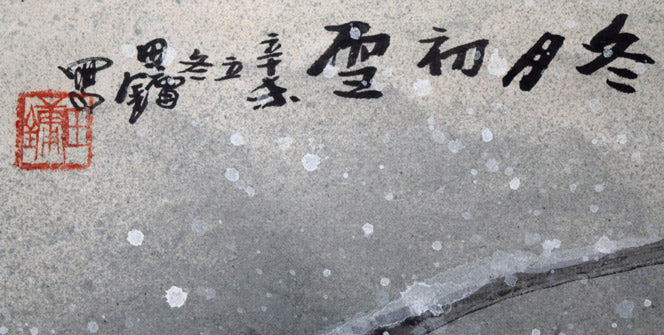 冬月初雪
辛未立冬田